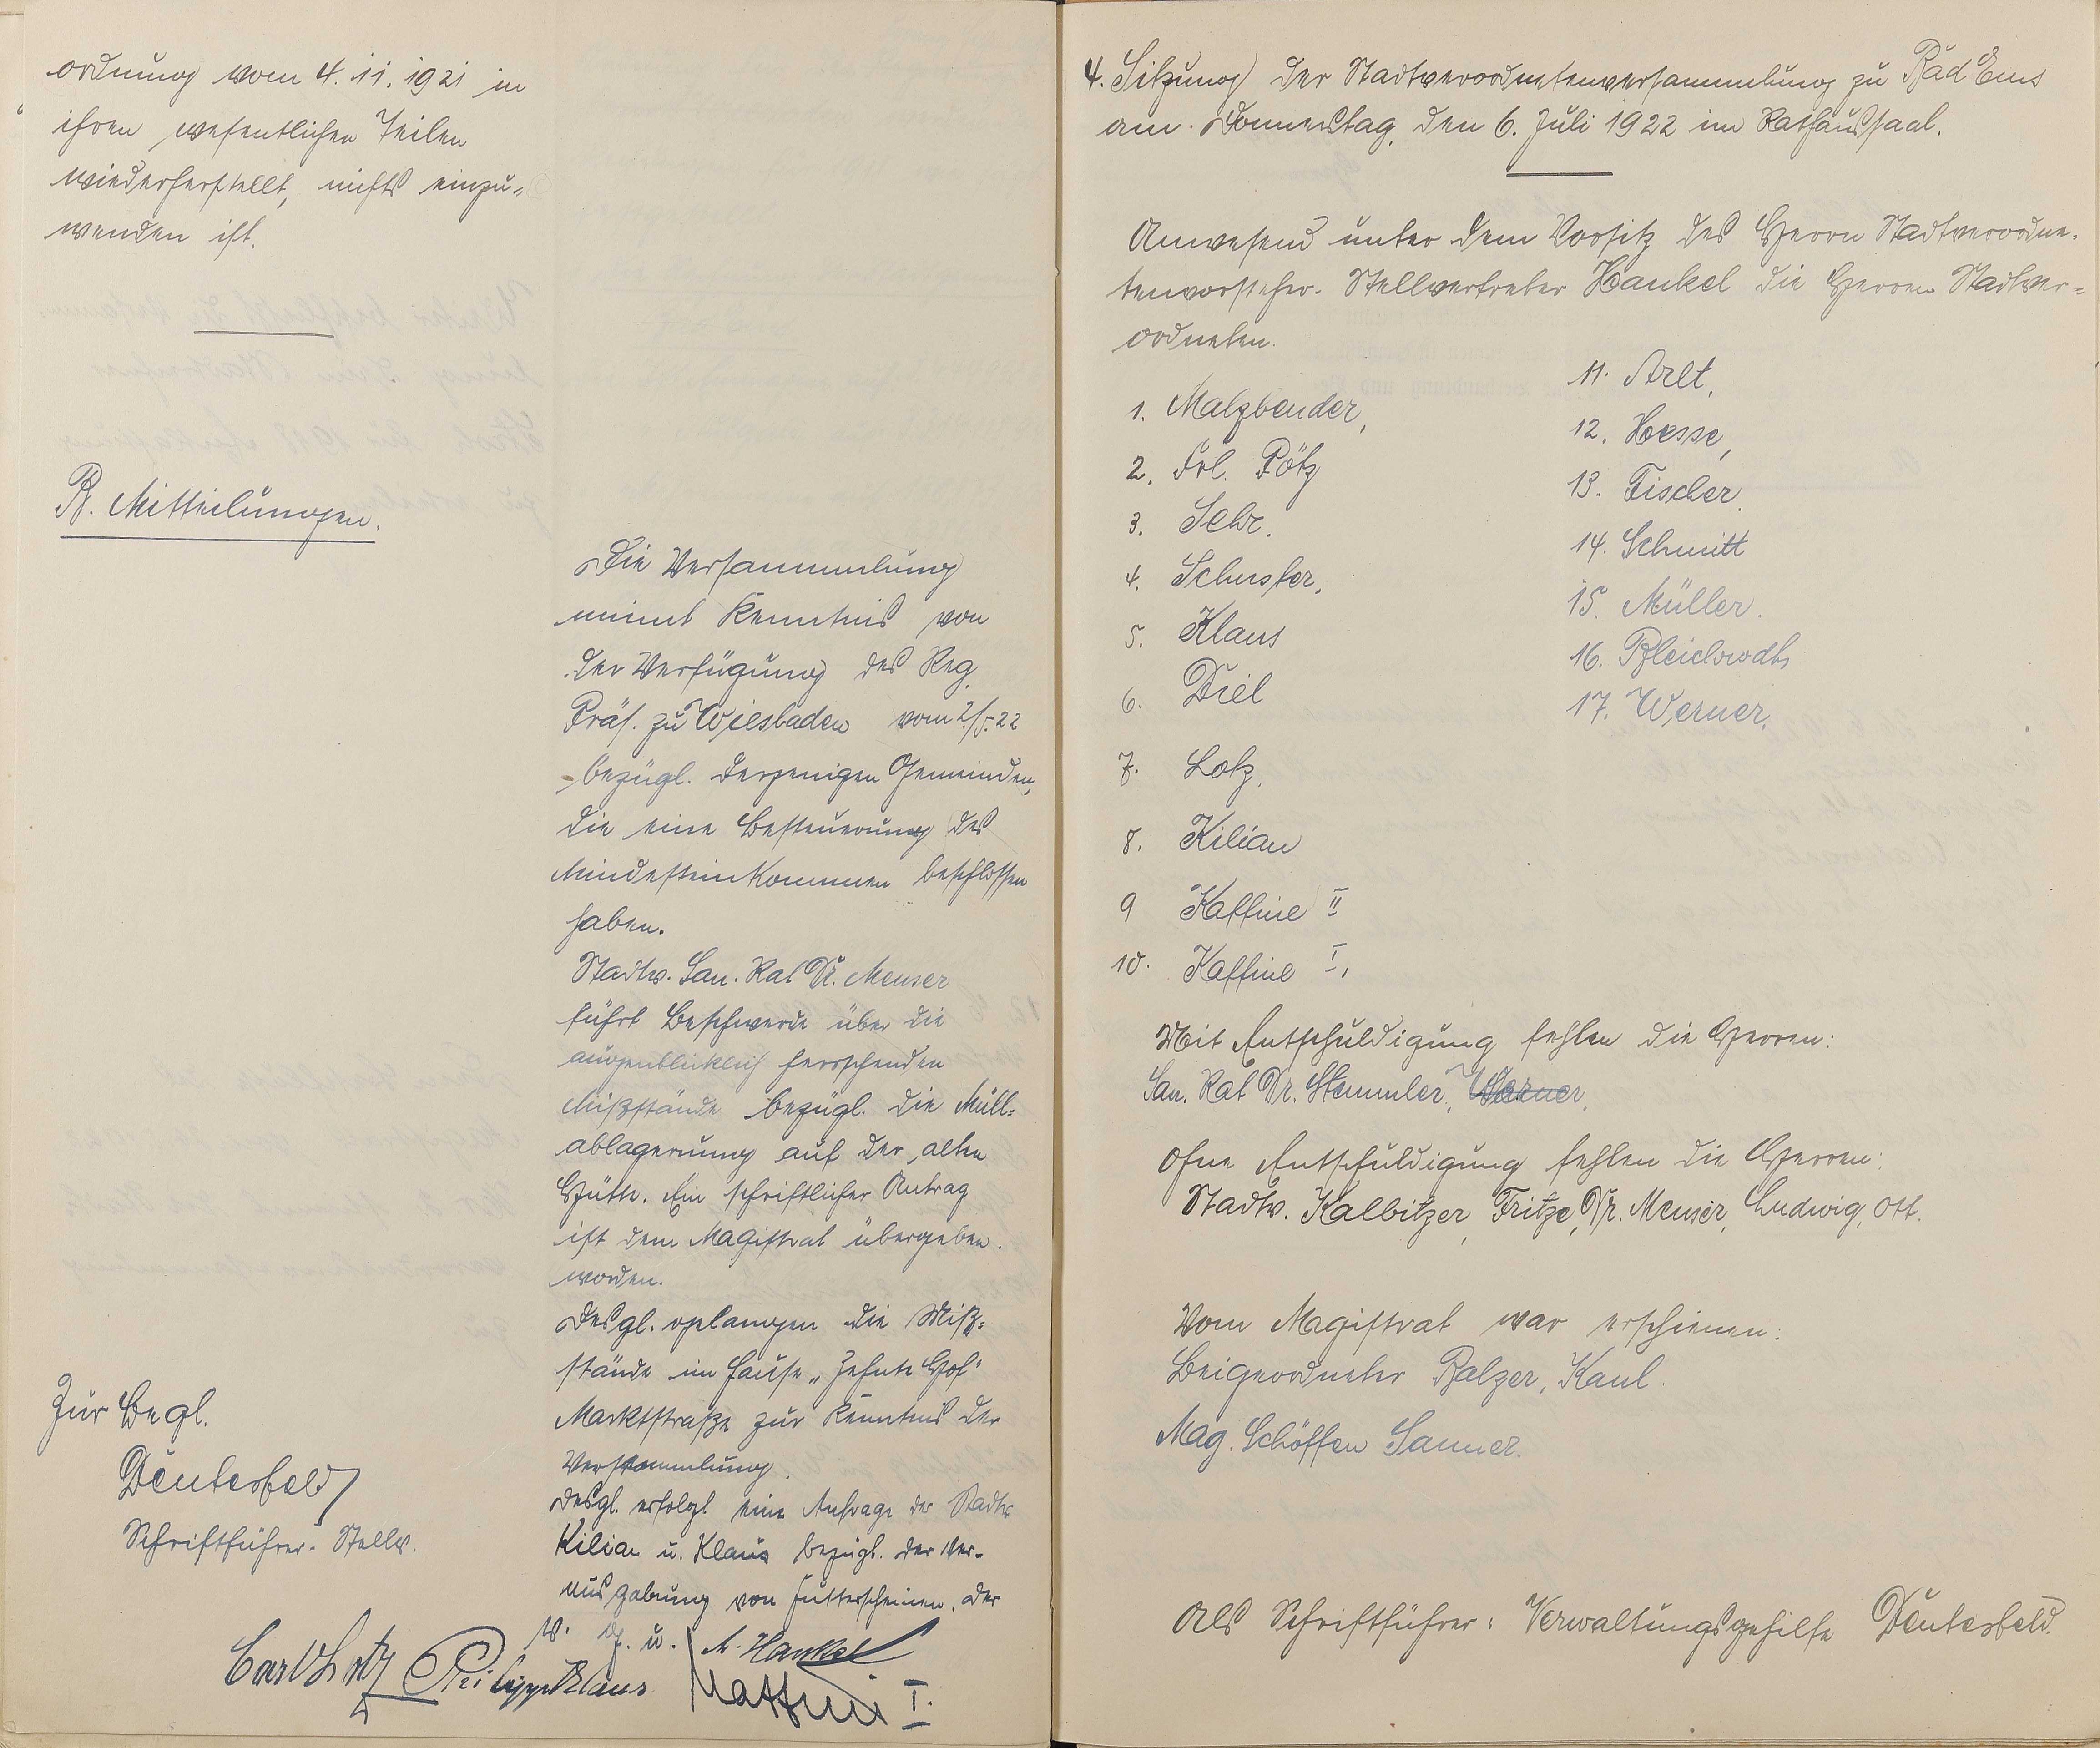 ordnung vom 4.11.1921 in
ihren wesentlichen Teilen
wiederherstellt, nichts einzu-
wenden ist.
B. Mitteilungen.
Die Versammlung
nimmt Kenntnis von
der Verfügung des Reg.
Präs. zu Wiesbaden vom 2/5.22
bezügl. derjenigen Gemeinden,
die eine Besteuerung des
Mindesteinkommen beschlossen
haben.
Stadtv. San. Rat Dr. Meuser
führt Beschwerde über die
augenblicklich herrschenden
Mißstände bezügl. die Müll-
ablagerung auf der alten
Hütte. Ein schriftlicher Antrag
ist dem Magistrat übergeben
worden.
Desgl. gelangen die Miß-
stände im Hause „Zehnte Hof"
Marktstraße zur Kenntnis der
Versammlung.
Desgl. erfolgt eine Anfrage der Stadtv.
Kilian u. Klaus bezügl. der Ver-
ausgabung von Futterscheinen. der
v. g. u.
Zur Begl.
Deutesfeld
Schriftführer-Stellv.
A. Hankel
Carl Lotz Philipp Klaus Kaffine I.
4. Sitzung der Stadtverordnetenversammlung zu Bad Ems
am Donnerstag, den 6. Juli 1922 im Rathaussaal.
Anwesend unter dem Vorsitz des Herrn Stadtverordne-
tenvorsteher-Stellvertreter Hankel die Herren Stadtver-
ordneten.
1. Malzbender,
2. Frl. Pötz
3. Sehr.
4. Schuster,
5. Klaus
6. Diel
7. Lotz,
8. Kilian
9 Kaffine II
10. Kaffine I,
11. Arlt,
12. Hesse,
13. Fischer.
14. Schmitt
15. Müller.
16. Bleichrodt,
17. Werner.
Mit Entschuldigung fehlen die Herren:
San. Rat Dr. Stemmler, Werner.
Ohne Entschuldigung fehlen die Herren:
Stadtv. Kalbitzer, Fritze, Dr. Meuser, Ludwig, Ott.
Vom Magistrat war erschienen:
Beigeordneter Balzer, Kaul.
Mag. Schöffen Sanner.
Als Schriftführer: Verwaltungsgehilfe Deutesfeld.